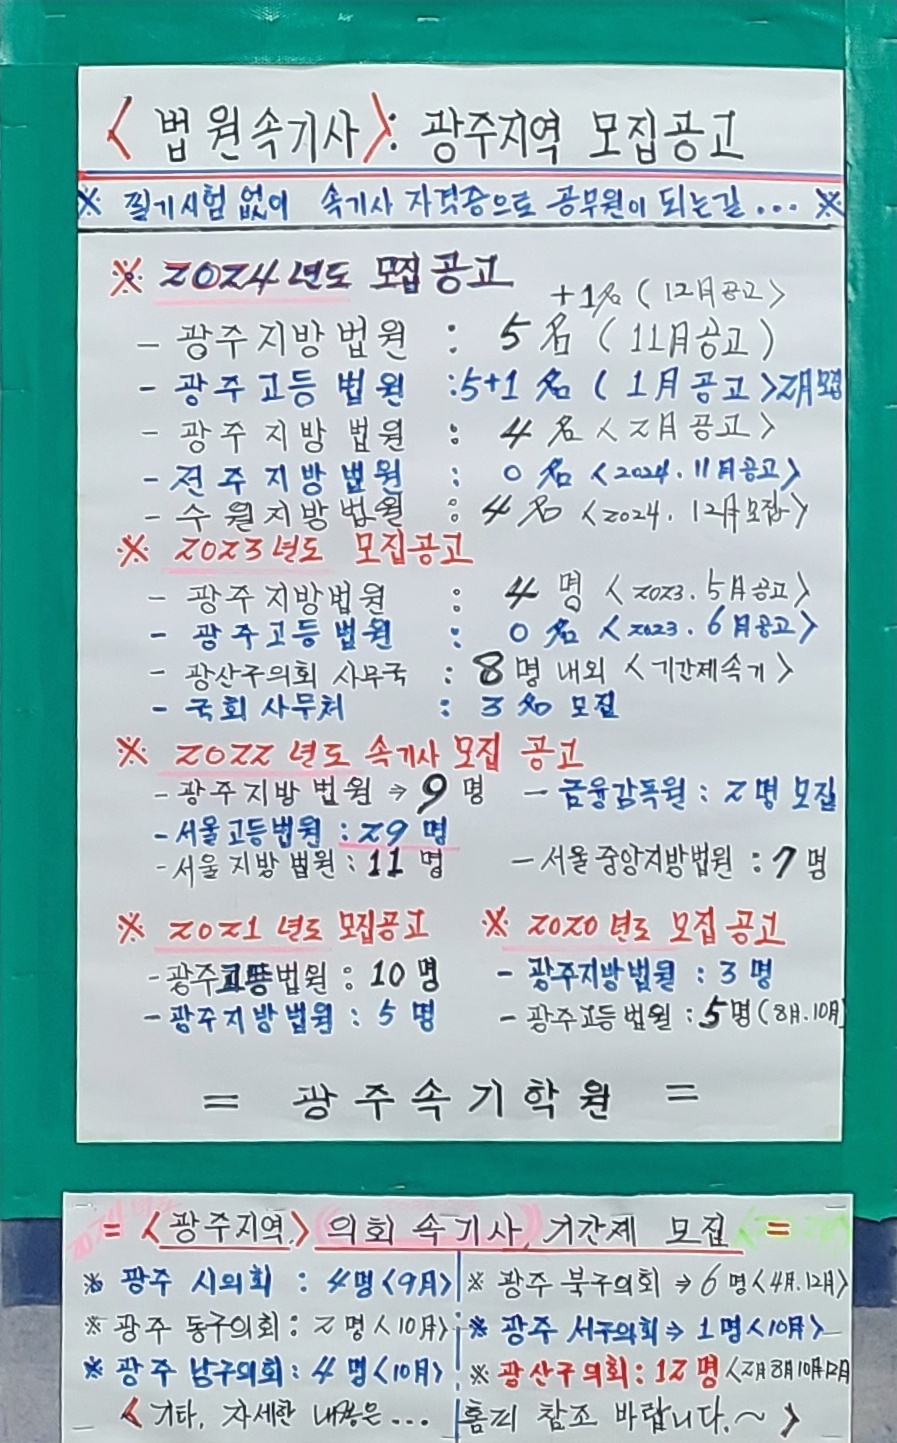 <법원속기사>: 광주지역 모집공고
※ 필기시험 없이 속기사 자격증으로 공무원이 되는길... ※
※ 2024년도 모집공고
+1名 (12月공고>
- 광주지방법원 : 5名 (11月공고)
- 광주고등법원 :5+1名 (1月공고>2月모집
- 광주지방법원 : 4名 <2月공고>
- 전주지방법원 : 0名 <2024.11月공고>
- 수원지방법원 : 4名 <2024.12月모집>
※ 2023년도 모집공고
- 광주지방법원 : 4명 <2023.5月공고>
- 광주고등법원 : 0名 <2023.6月공고>
- 광산구의회 사무국 : 8명 내외 <기간제속기>
- 국회 사무처 : 3名 모집
※ 2022년도 속기사 모집 공고
- 광주지방법원 → 9명 - 금융감독원 : 2명 모집
- 서울고등법원 : 29명
- 서울지방법원 : 11명 - 서울중앙지방법원 : 7명
※ 2021년도 모집공고 ※ 2020년도 모집공고
- 광주고등법원 : 10명 - 광주지방법원 : 3명
- 광주지방법원 : 5명 - 광주고등법원 : 5명(8月.10月)
= 광주속기학원 =
= <광주지역> 의회 속기사 기간제 모집 =
※ 광주 시의회 : 4명<9月> ※ 광주 북구의회 → 6명<4月.12月>
※ 광주 동구의회 : 2명<10月> ※ 광주 서구의회 → 1명<10月>
※ 광주 남구의회 : 4명<10月> ※ 광산구의회 : 12명<2月8月10月12月
<기타, 자세한 내용은... 홈피 참조 바랍니다.~>